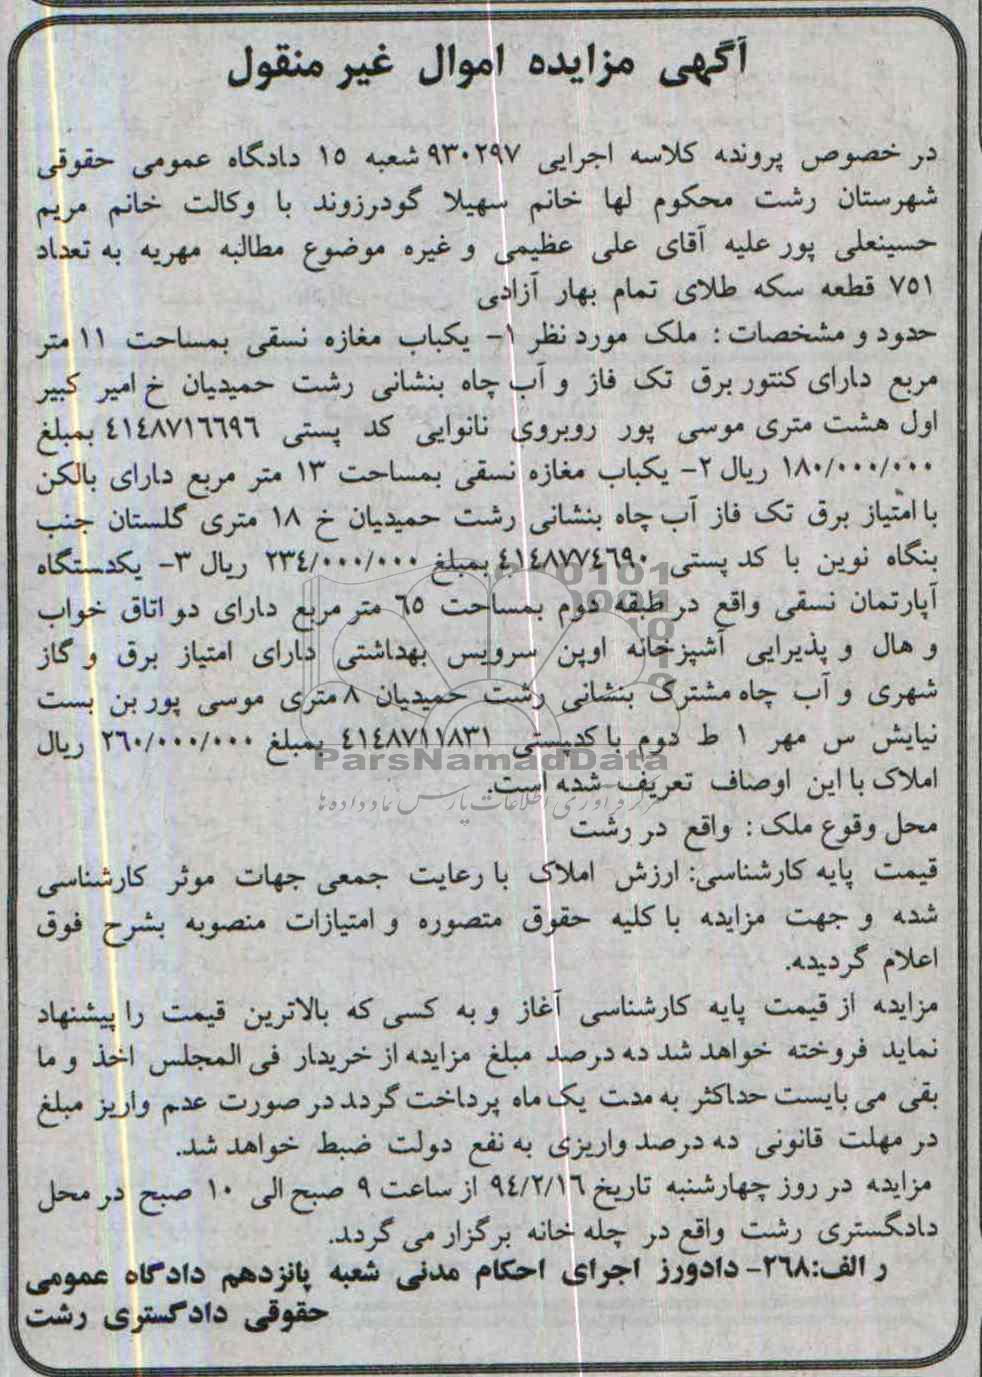 آگهی مزایده اموال غیر منقول
در خصوص پرونده کلاسه اجرایی ۹۳۰۲۹۷ شعبه ۱۵ دادگاه عمومی حقوقی
شهرستان رشت محکوم لها خانم سهیلا گودرزوند با وکالت خانم مریم
حسینعلی پور علیه آقای علی عظیمی و غیره موضوع مطالبه مهریه به تعداد
۷۵۱ قطعه سکه طلای تمام بهار آزادی
حدود و مشخصات : ملک مورد نظر ۱- یکباب مغازه نسقی بمساحت ۱۱ متر
مربع دارای کنتور برق تک فاز و آب چاه بنشانی رشت حمیدیان خ امیر کبیر
اول هشت متری موسی پور روبروی نانوایی کد پستی ٤١٤٨٧١٦٦٩٦ بمبلغ
۱۸۰/۰۰۰/۰۰۰ ریال ۲- یکباب مغازه نسقی بمساحت ۱۳ متر مربع دارای بالکن
با امتیاز برق تک فاز آب چاه بنشانی رشت حمیدیان خ ۱۸ متری گلستان جنب
بنگاه نوین با کد پستی ٤١٤٨٧٧٤٦٩٠ بمبلغ ۲۳٤/۰۰۰/۰۰۰ ریال ۳- یکدستگاه
آپارتمان نسقی واقع در طبقه دوم بمساحت ٦٥ متر مربع دارای دو اتاق خواب
و هال و پذیرایی آشپزخانه اوپن سرویس بهداشتی دارای امتیاز برق و گاز
شهری و آب چاه مشترک بنشانی رشت حمیدیان ۸ متری موسی پور بن بست
نیایش س مهر ۱ ط دوم با کدپستی ٤١٤٨٧١١٨٣١ بمبلغ ۲٦۰/۰۰۰/۰۰۰ ریال
ParsNamadData
املاک با این اوصاف تعریف شده است.
مرکز فرآوری اطلاعات پارس نماد داده ها
محل وقوع ملک : واقع در رشت
قیمت پایه کارشناسی: ارزش املاک با رعایت جمعی جهات موثر کارشناسی
شده و جهت مزایده با کلیه حقوق متصوره و امتیازات منصوبه بشرح فوق
اعلام گردیده.
مزایده از قیمت پایه کارشناسی آغاز و به کسی که بالاترین قیمت را پیشنهاد
نماید فروخته خواهد شد ده درصد مبلغ مزایده از خریدار فی المجلس اخذ و ما
بقی می بایست حداکثر به مدت یک ماه پرداخت گردد در صورت عدم واریز مبلغ
در مهلت قانونی ده درصد واریزی به نفع دولت ضبط خواهد شد.
مزایده در روز چهارشنبه تاریخ ۹٤/۲/۱٦ از ساعت ۹ صبح الی ۱۰ صبح در محل
دادگستری رشت واقع در چله خانه برگزار می گردد.
ر الف:۲٦۸- دادورز اجرای احکام مدنی شعبه پانزدهم دادگاه عمومی
حقوقی دادگستری رشت